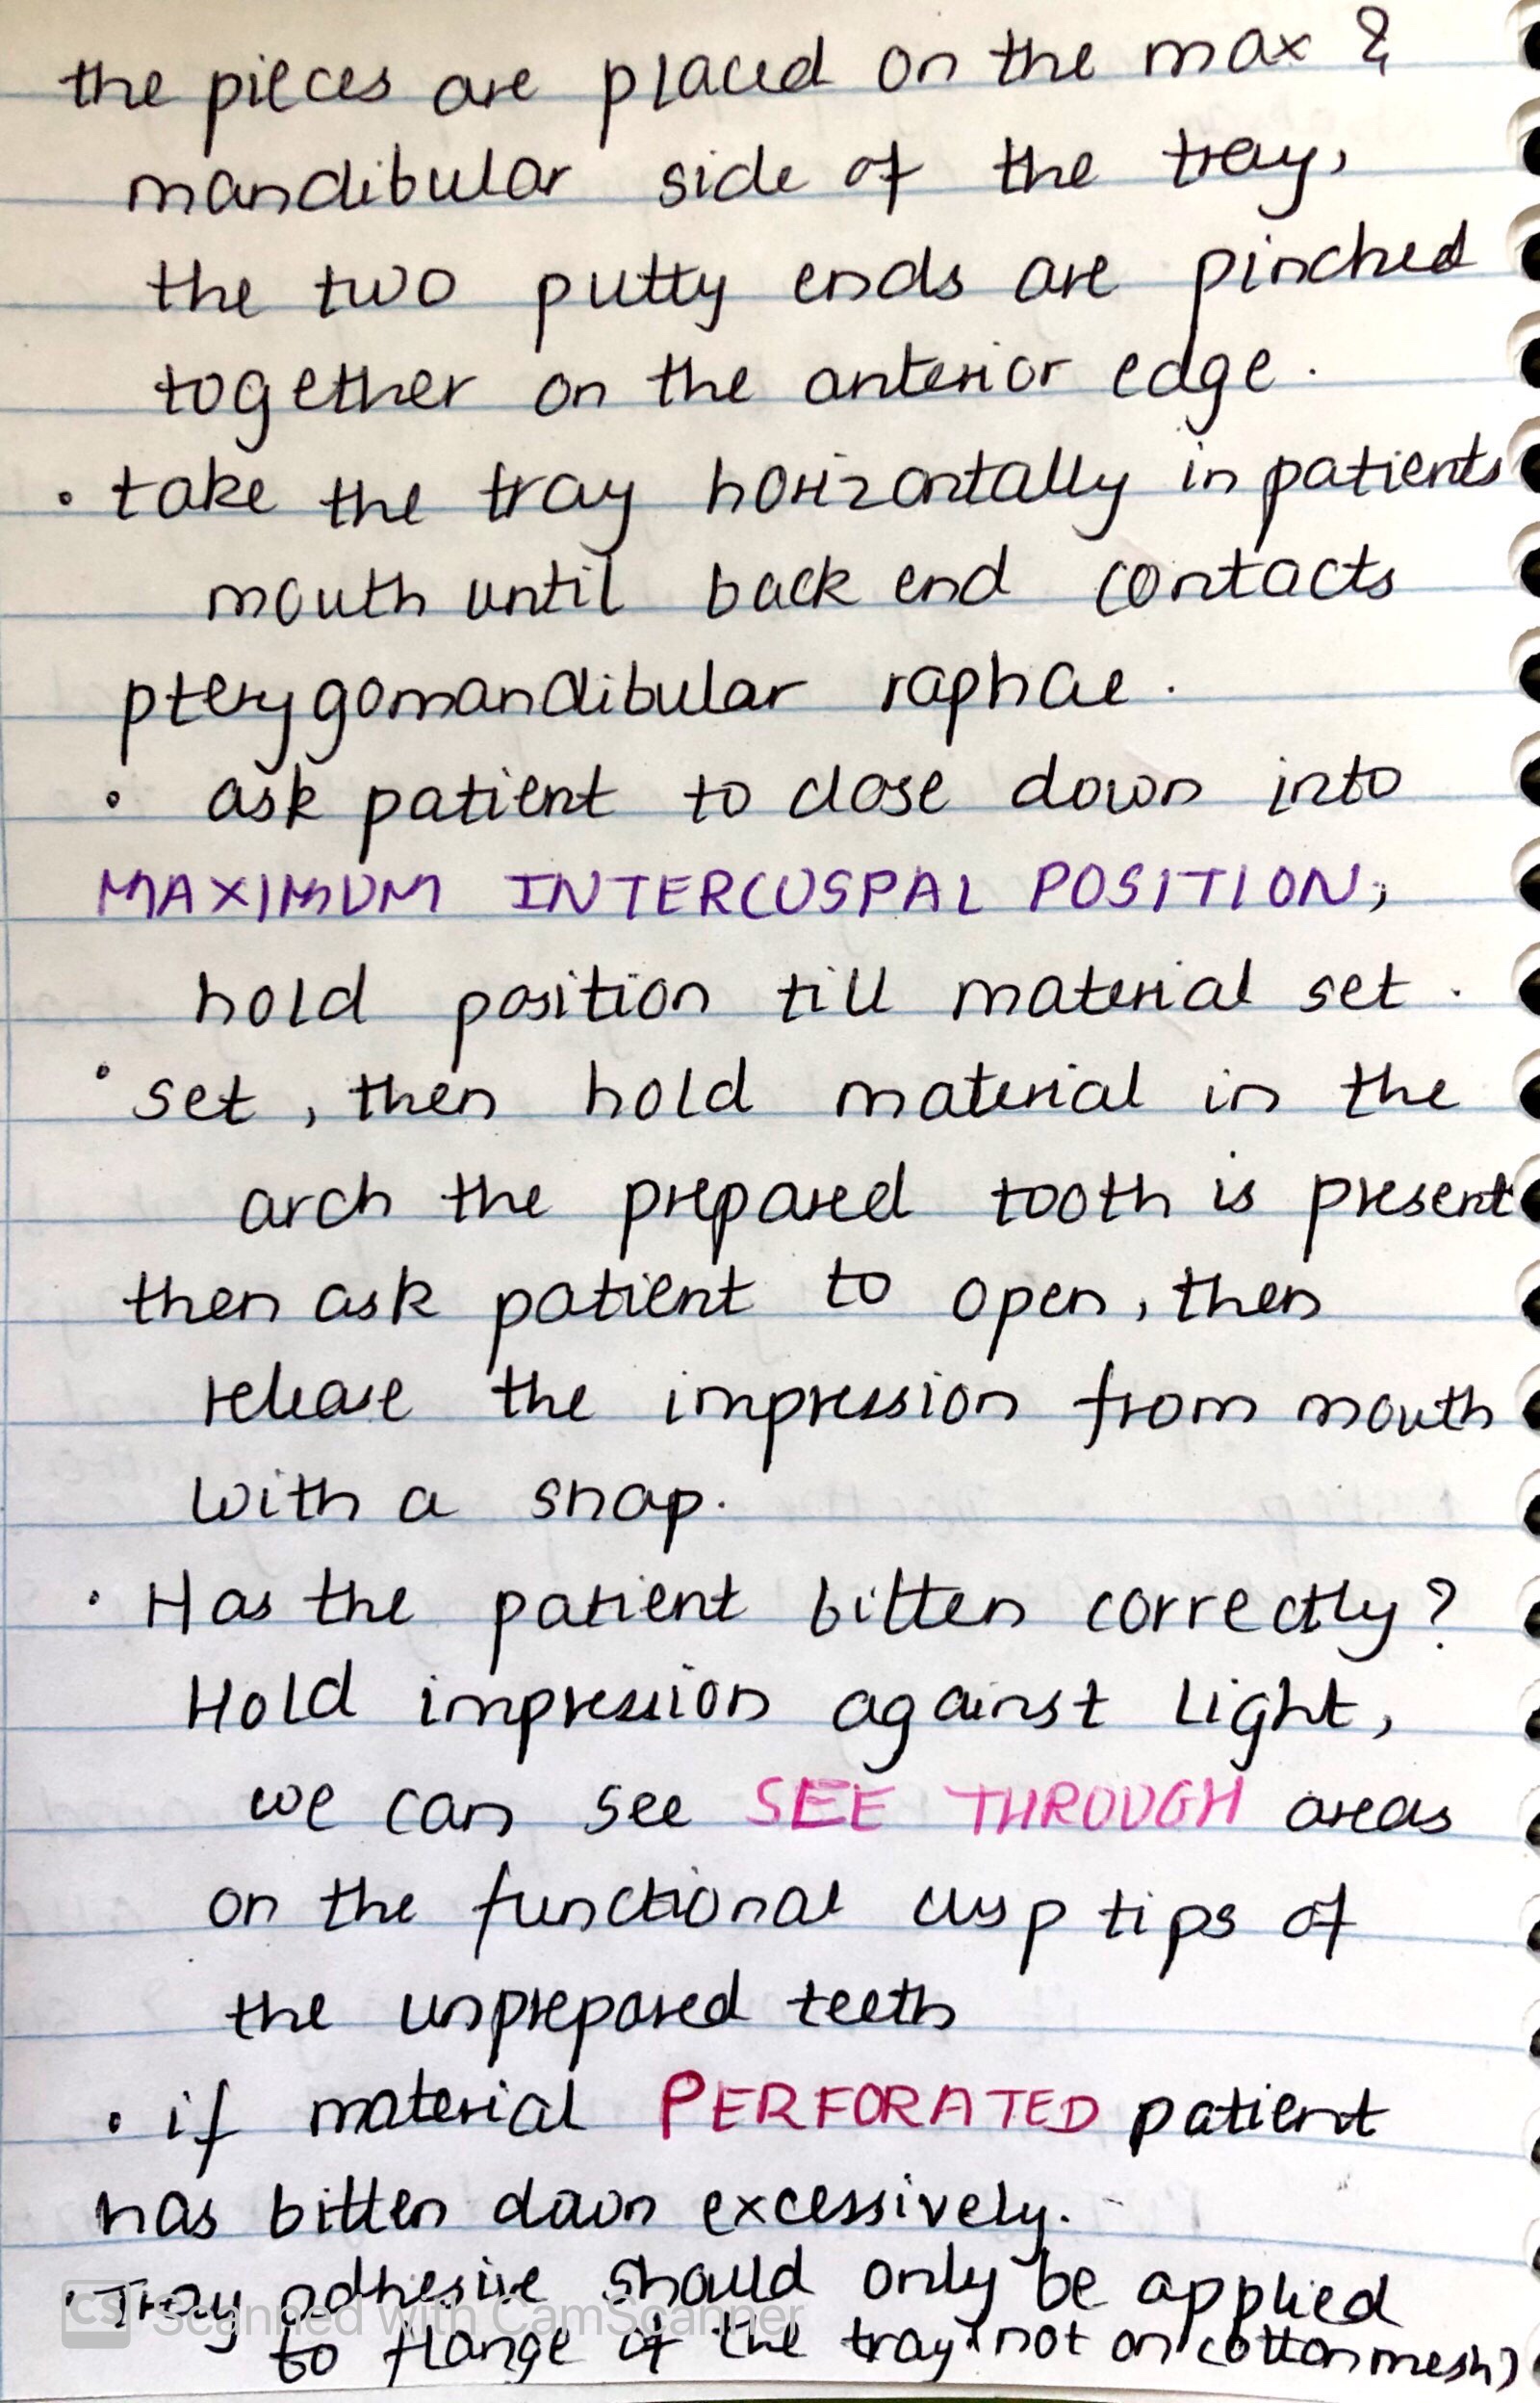 the pieces are placed on the max &
mandibular side of the tray,
the two putty ends are pinched
together on the anterior edge.
• take the tray horizontally in patients
mouth until back end contacts
pterygomandibular raphae.
• ask patient to close down into
MAXIMUM INTERCUSPAL POSITION,
hold position till material set.
• set, then hold material in the
arch the prepared tooth is present
then ask patient to open, then
release the impression from mouth
with a snap.
• Has the patient bitten correctly?
Hold impression against light,
we can see SEE THROUGH areas
on the functional cusp tips of
the unprepared teeth
• if material PERFORATED patient
has bitten down excessively.
• Tray adhesive should only be applied
to flange of the tray (not on cotton mesh)
CS Scanned with CamScanner